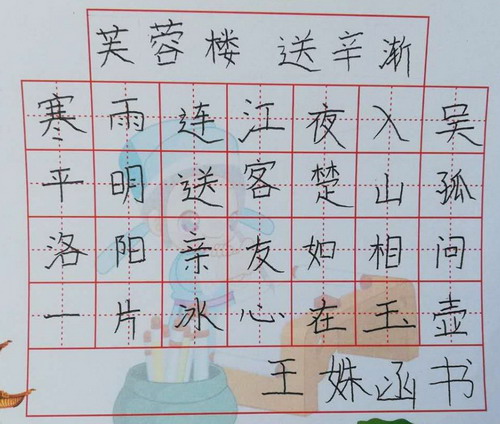 芙蓉楼 送辛渐
寒雨连江夜入吴
平明送客楚山孤
洛阳亲友如相问
一片冰心在玉壶
王姝函书